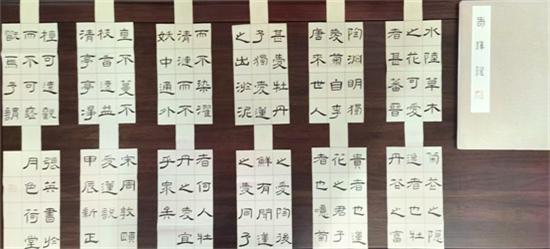 愛蓮說
水陸草木
之花可愛
者甚蕃晉
陶淵明獨
愛菊自李
唐来世人
甚愛牡丹
予獨愛蓮
之出淤泥
而不染濯
清漣而不
妖中通外
直不蔓不
枝香遠益
清亭亭淨
植可遠觀
而不可褻
翫焉予謂
菊花之隱
逸者也牡
丹花之富
貴者也蓮
花之君子
者也噫菊
之愛陶後
鮮有聞蓮
之愛同予
者何人牡
丹之愛宜
乎衆矣
宋周敦頤
愛蓮說
甲辰新正
張英書於
月色荷堂